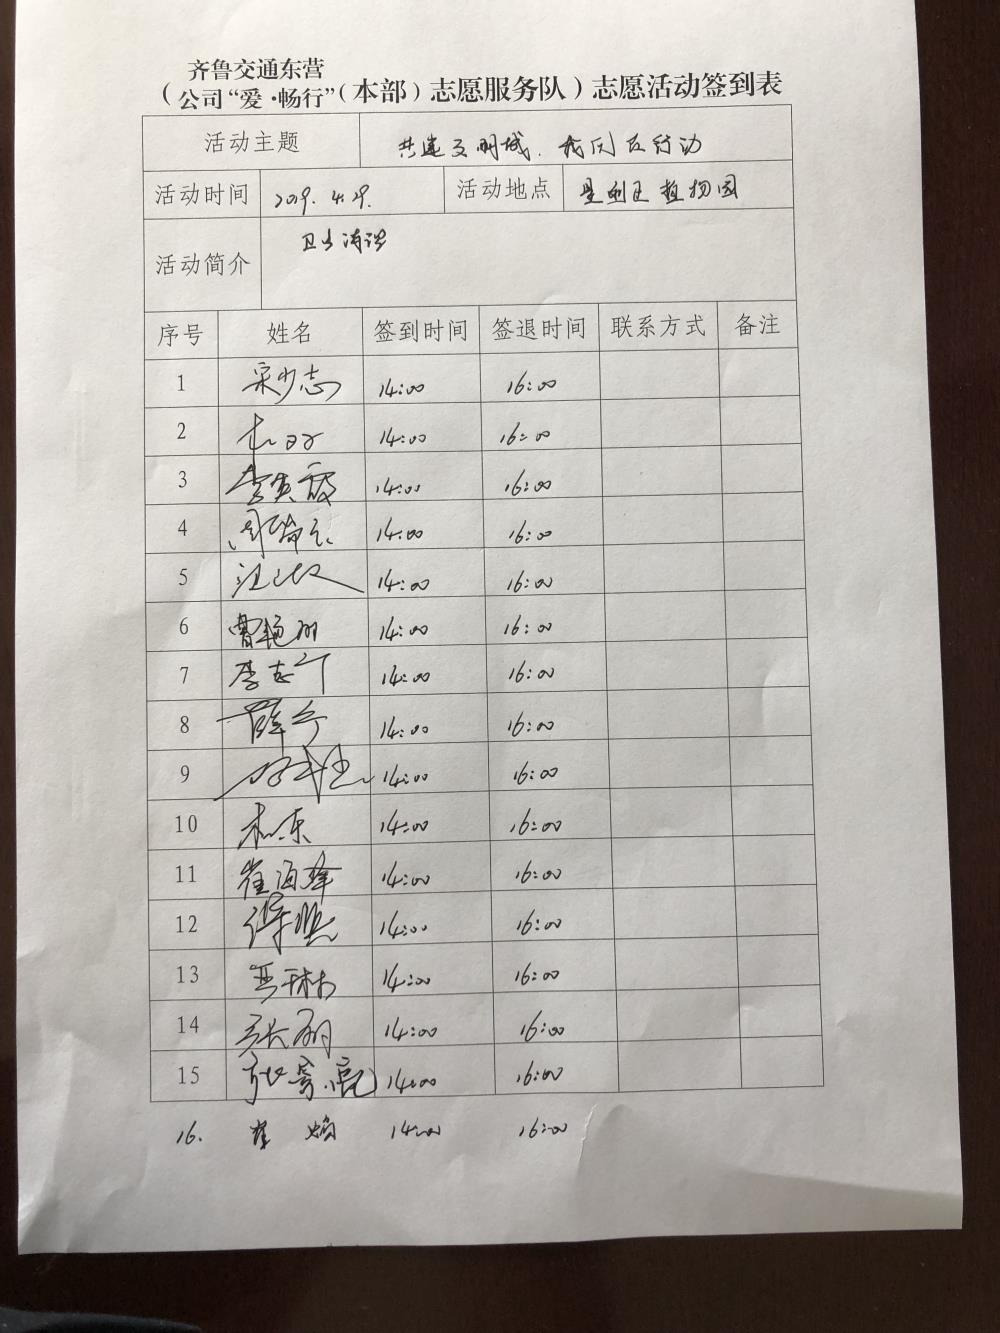 齐鲁交通东营
(公司“爱·畅行”(本部)志愿服务队)志愿活动签到表
活动主题 共建文明城、我们在行动
活动时间 2019.4.29. 活动地点 垦利区植物园
活动简介 卫生清洁
序号 姓名 签到时间 签退时间 联系方式 备注
1 宋少志 14:00 16:00
2 14:00 16:00
3 李英霞 14:00 16:00
4 14:00 16:00
5 14:00 16:00
6 曹艳丽 14:00 16:00
7 李志 14:00 16:00
8 薛 14:00 16:00
9 14:00 16:00
10 14:00 16:00
11 崔海峰 14:00 16:00
12 14:00 16:00
13 14:00 16:00
14 张丽 14:00 16:00
15 14:00 16:00
16. 14:00 16:00